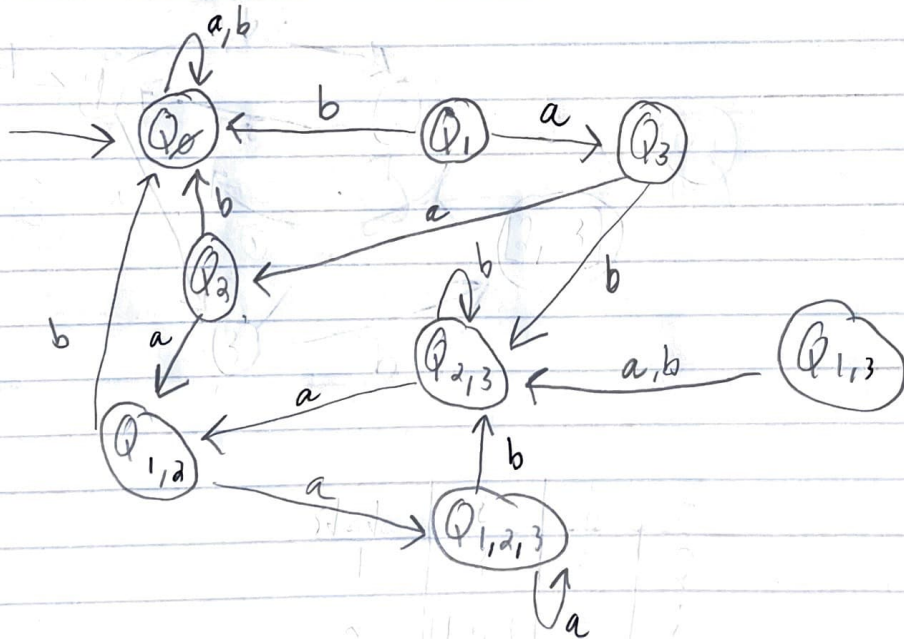 a,b
Q∅
b
Q1
a
Q3
b
a
Q2
b
b
a
b
Q2,3
a,b
Q1,3
a
Q1,2
b
a
Q1,2,3
a